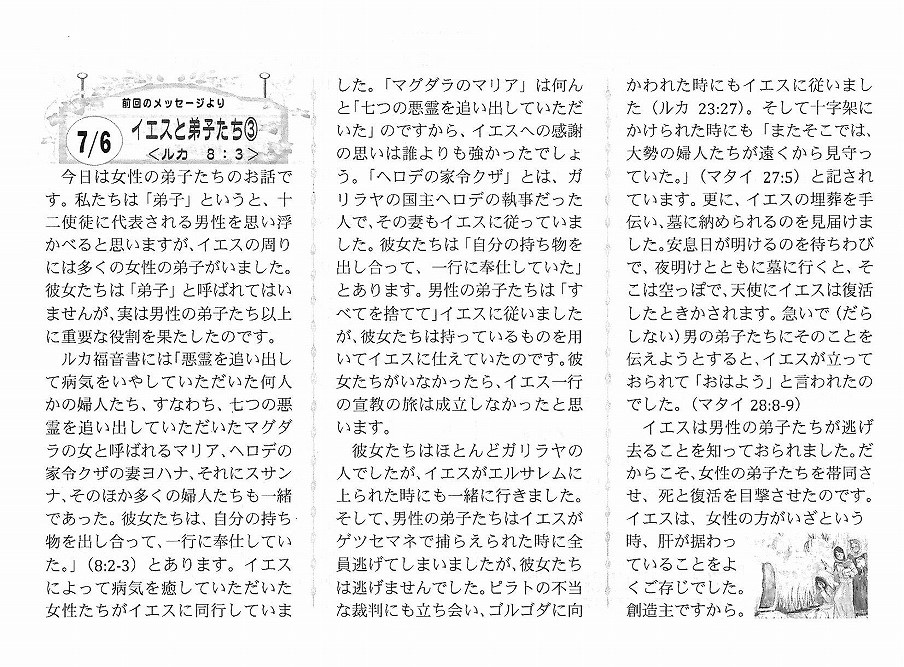 前回のメッセージより
7/6
イエスと弟子たち③
＜ルカ 8：3＞
今日は女性の弟子たちのお話で
す。私たちは「弟子」というと、十
二使徒に代表される男性を思い浮
かべると思いますが、イエスの周り
には多くの女性の弟子がいました。
彼女たちは「弟子」と呼ばれてはい
ませんが、実は男性の弟子たち以上
に重要な役割を果たしたのです。
ルカ福音書には「悪霊を追い出し
て病気をいやしていただいた何人
かの婦人たち、すなわち、七つの悪
霊を追い出していただいたマグダ
ラの女と呼ばれるマリア、ヘロデの
家令クザの妻ヨハナ、それにスサン
ナ、そのほか多くの婦人たちも一緒
であった。彼女たちは、自分の持ち
物を出し合って、一行に奉仕してい
た。」（8:2-3）とあります。イエス
によって病気を癒していただいた
女性たちがイエスに同行していま
した。「マグダラのマリア」は何ん
と「七つの悪霊を追い出していただ
いた」のですから、イエスへの感謝
の思いは誰よりも強かったでしょ
う。「ヘロデの家令クザ」とは、ガ
リラヤの国主ヘロデの執事だった
人で、その妻もイエスに従っていま
した。彼女たちは「自分の持ち物を
出し合って、一行に奉仕していた」
とあります。男性の弟子たちは「す
べてを捨てて」イエスに従いました
が、彼女たちは持っているものを用
いてイエスに仕えていたのです。彼
女たちがいなかったら、イエス一行
の宣教の旅は成立しなかったと思
います。
彼女たちはほとんどガリラヤの
人でしたが、イエスがエルサレムに
上られた時にも一緒に行きました。
そして、男性の弟子たちはイエスが
ゲツセマネで捕らえられた時に全
員逃げてしまいましたが、彼女たち
は逃げませんでした。ピラトの不当
な裁判にも立ち会い、ゴルゴダに向
かわれた時にもイエスに従いまし
た（ルカ 23:27）。そして十字架に
かけられた時にも「またそこでは、
大勢の婦人たちが遠くから見守っ
ていた。」（マタイ 27:5）と記され
ています。更に、イエスの埋葬を手
伝い、墓に納められるのを見届けま
した。安息日が明けるのを待ちわび
で、夜明けとともに墓に行くと、そ
こは空っぽで、天使にイエスは復活
したときかされます。急いで（だら
しない）男の弟子たちにそのことを
伝えようとすると、イエスが立って
おられて「おはよう」と言われたの
でした。（マタイ 28:8-9）
イエスは男性の弟子たちが逃げ
去ることを知っておられました。だ
からこそ、女性の弟子たちを帯同さ
せ、死と復活を目撃させたのです。
イエスは、女性の方がいざという
時、肝が据わっ
ていることをよ
くご存じでした。
創造主ですから。